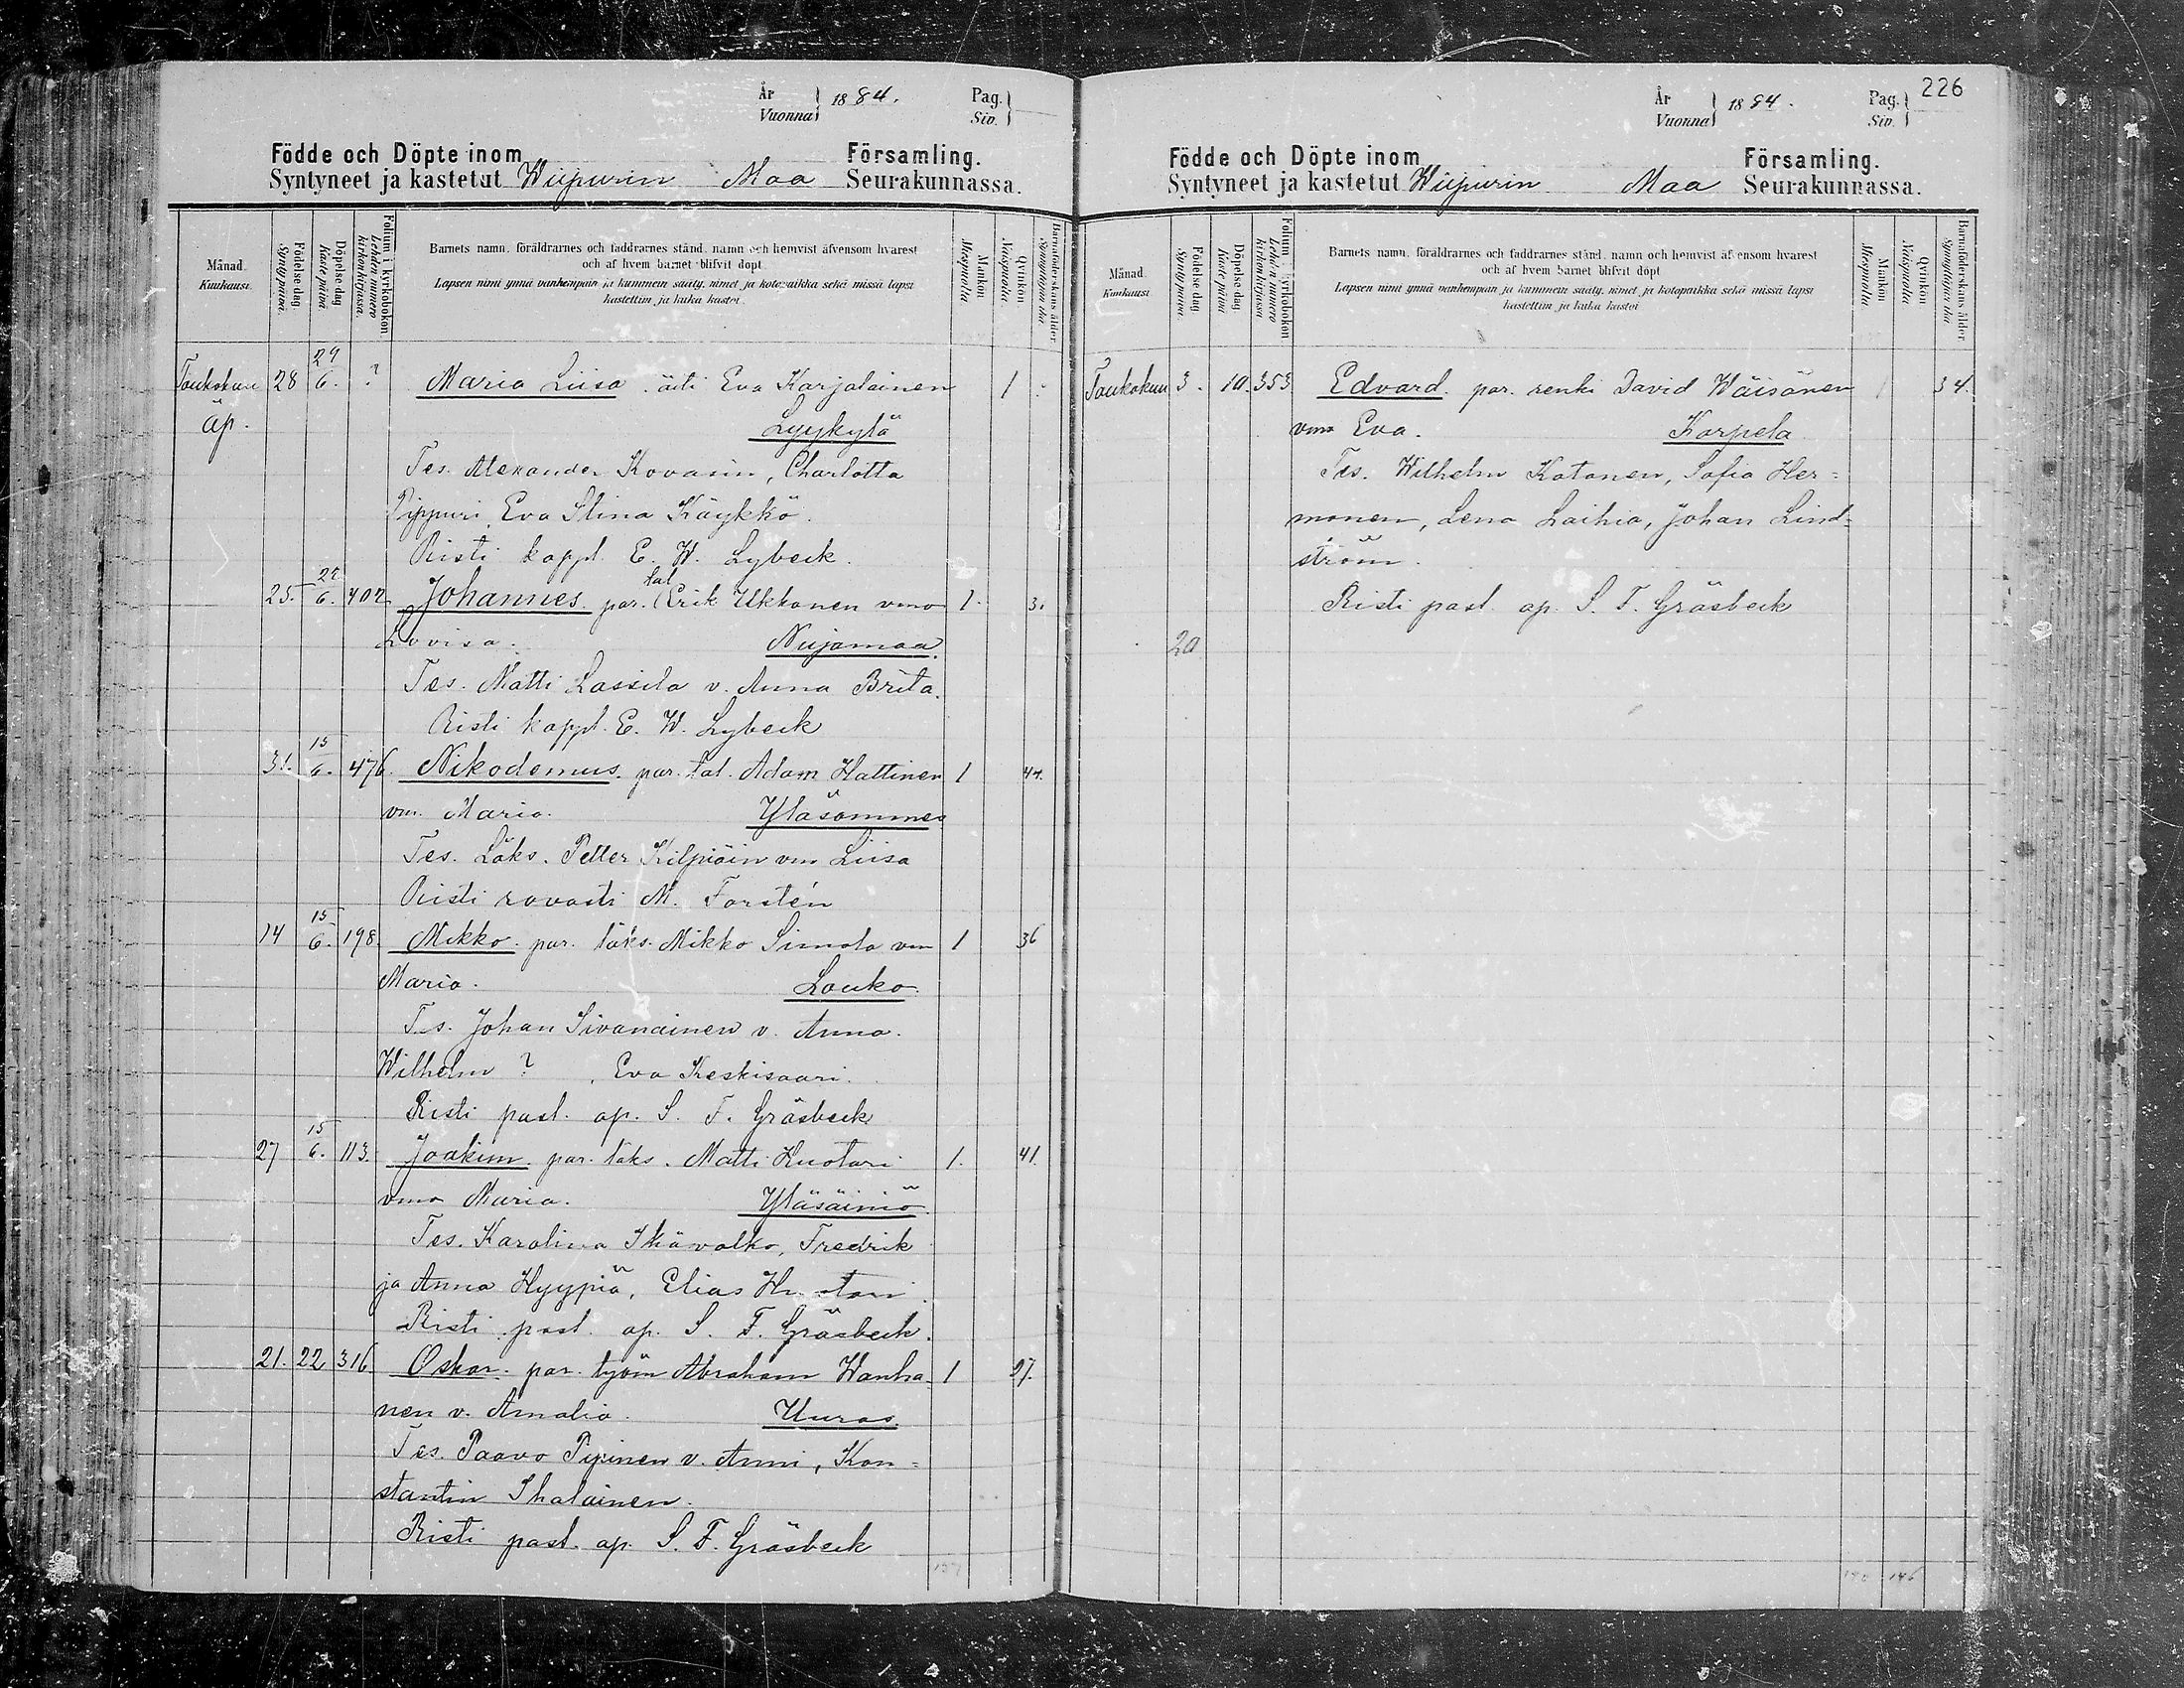 År
Vuonna } 1884. Pag.
Siv. }
Födde och Döpte inom Församling.
Syntyneet ja kastetut Wiipurin Maa Seurakunnassa.
Månad.
Kuukausi.
Födelse dag.
Syntypäivä.
Döpelse dag.
Kastepäivä
Folium i kyrkobokon
Lehden numero
kirkonkirjassa.
Barnets namn, föräldrarnes och faddrarnes stånd, namn och hemvist äfvensom hvarest
och af hvem barnet blifvit döpt.
Lapsen nimi ynnä vanhempain ja kummein sääty, nimet ja kotopaikka sekä missä lapsi
kastettiin ja kuka kastoi.
Mankön.
Miespuolia.
Qvinkön.
Naispuolia.
Barnaföderskans ålder
Synnyttäjän ikä
Toukokuu 28 29/6. ? Maria Liisa. äiti Eva Karjalainen 1
äp. Lyykylä
Tes. Alexander Kovasin, Charlotta
Pippuri, Eva Stina Käykkö.
Risti kappl. E. W. Lybeck.
25. 22/6. 402 Johannes par. tal. Erik Ukkonen vmo 1. 3.
Lovisa. Nuijamaa.
Tes. Matti Lassila v. Anna Brita.
Risti kappl. E. W. Lybeck
31. 15/6. 476. Nikodemus. par. tal. Adam Hattinen 1 44.
vm. Maria. Yläsommee
Tes. Läks. Petter Kilpiäin vm Liisa
Risti rovasti M. Forstén
14 15/6. 198. Mikko. par. läks. Mikko Simola vm 1 36
Maria. Louko.
Tes. Johan Sivanainen v. Anna.
Wilhelm ? , Eva Keskisaari.
Risti past. ap. S. F. Gräsbeck
27 15/6. 113. Joakim. par. läks. Matti Huotari 1. 41.
vmo Maria. Yläsäiniö.
Tes. Karolina Ikävalko, Fredrik
ja Anna Hyypiä, Elias Huotari.
Risti past. ap. S. F. Gräsbeck.
21. 22 316. Oskar. par. työm Abraham Wanha- 1 27.
nen v. Amalia. Uuras.
Tes. Paavo Pyrinen v. Anni, Kon=
stantin Ihalainen.
Risti past. ap. S. F. Gräsbeck
226
År
Vuonna } 1884. Pag.
Siv. }
Födde och Döpte inom Församling.
Syntyneet ja kastetut Wiipurin Maa Seurakunnassa.
Månad.
Kuukausi
Födelse dag.
Syntypäivä.
Döpelse dag.
Kastepäivä
Folium i kyrkobokon
Lehden numero
kirkonkirjassa
Barnets namn, föräldrarnes och faddrarnes stånd, namn och hemvist äfvensom hvarest
och af hvem barnet blifvit döpt
Lapsen nimi ynnä vanhempain ja kummein sääty, nimet ja kotopaikka sekä missä lapsi
kastettiin ja kuka kastoi
Mankön
Miespuolia.
Qvinkön
Naispuolia
Barnaföderskans ålder
Synnyttäjän ikä
Toukokuu 3. 10. 353 Edvard. par. renki David Wäisänen 1 34.
vmo Eva. Karpela
Tes. Wilhelm Katanen, Sofia Her=
monen, Lena Laihia, Johan Lind-
ström.
Risti past. ap. S. F. Gräsbeck
20
146